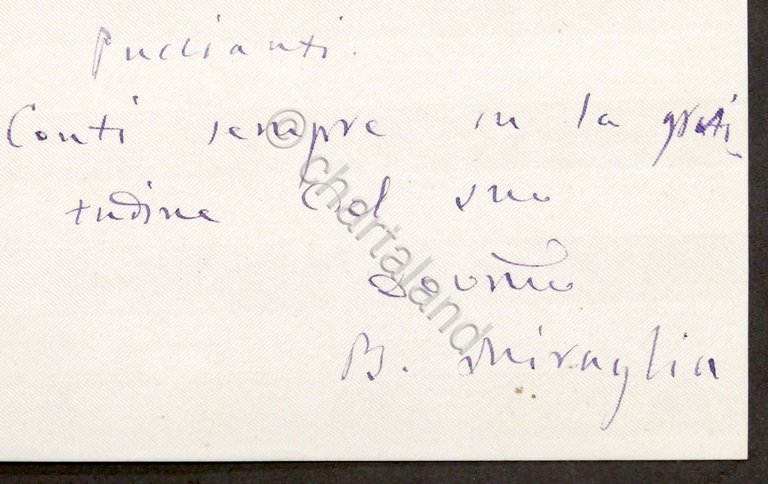 Puccianti.
Conti sempre in la grati
tudine del suo
devmo
B. Miraglia
© chartaland